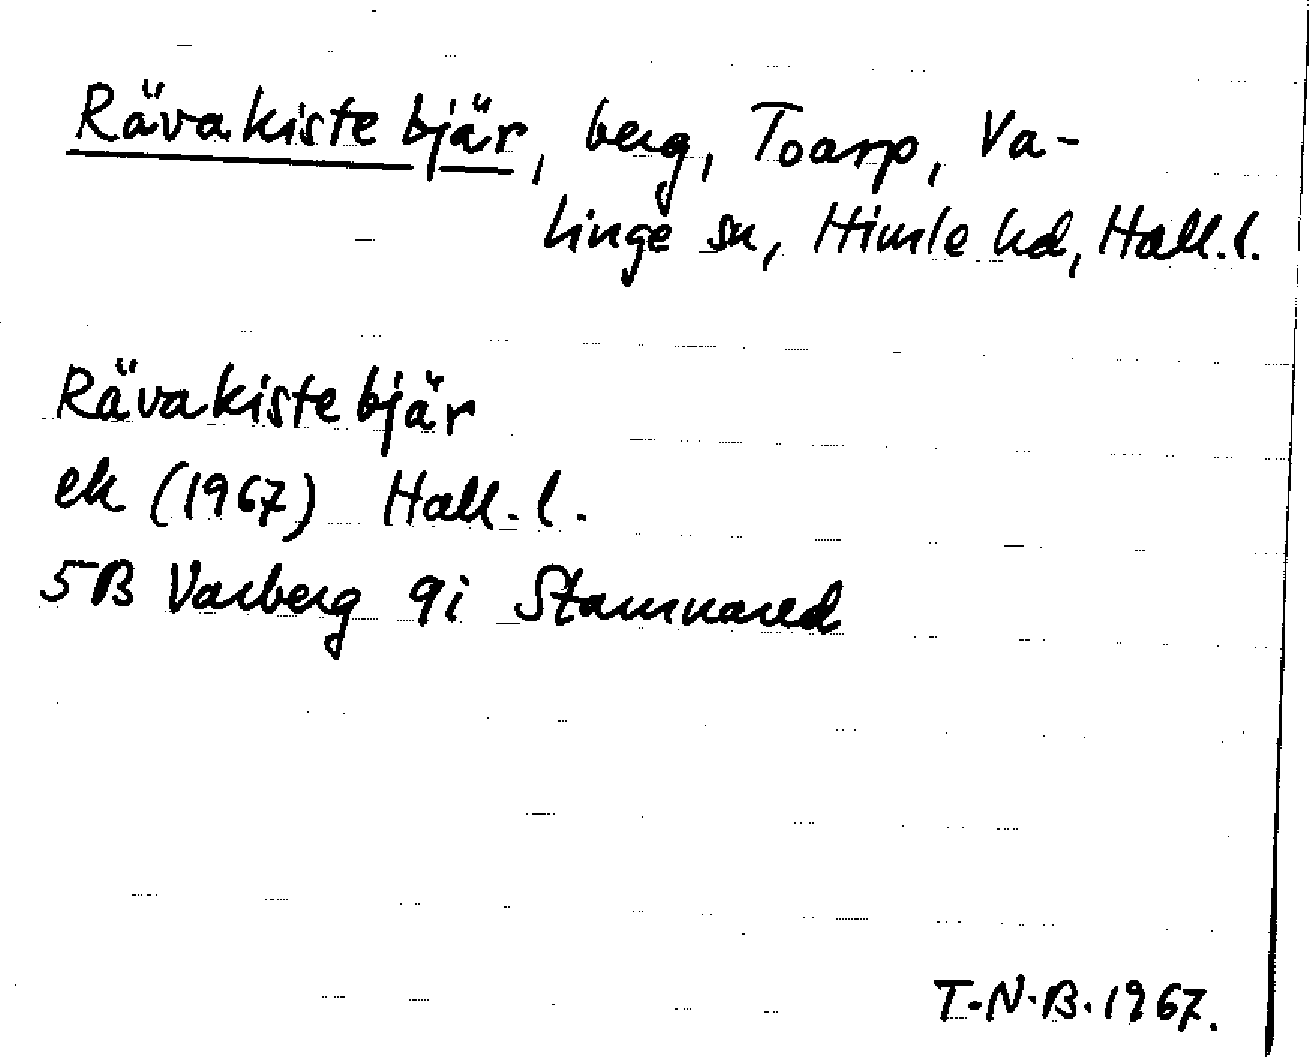 Rävakistebjär, berg, Toarp, Va-
linge sn, Himle hd, Hall.l.
Rävakistebjär
ek (1967) Hall.l.
5B Varberg 9i Stamnared
T.N.B. 1967.